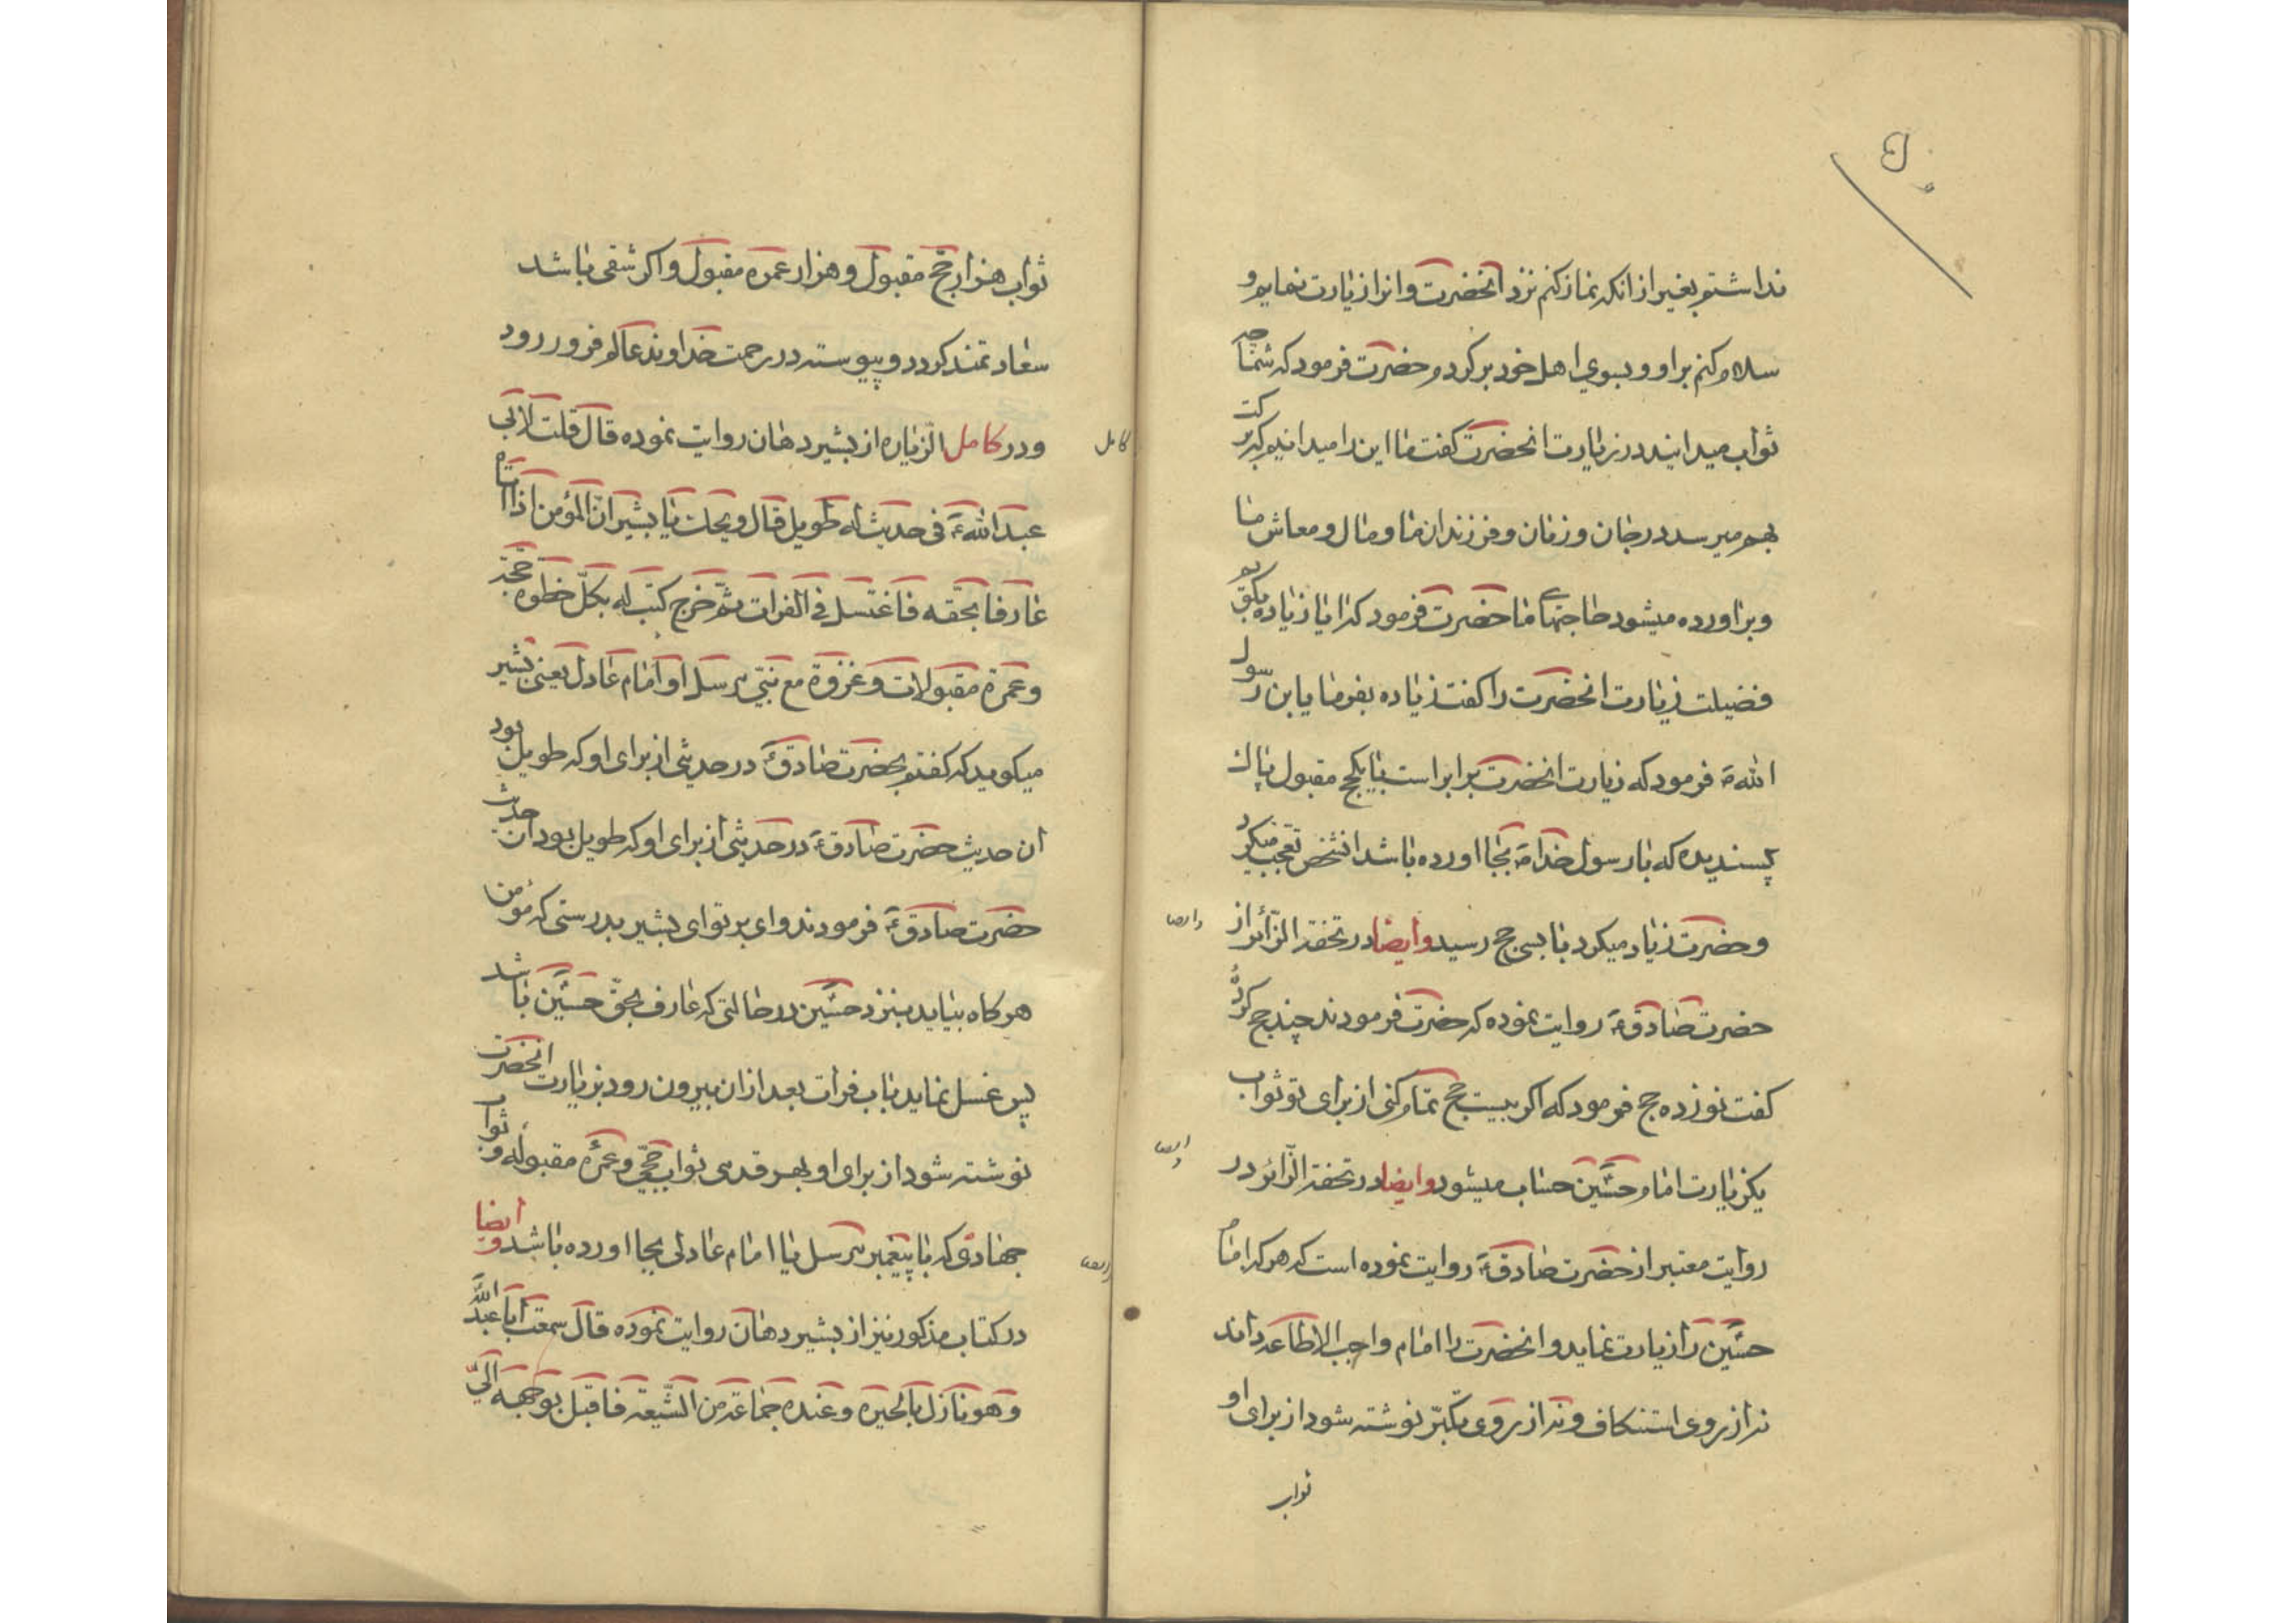 نداشتم بغیر از انکه نماز کنم نزد انحضرت وانرا زیارت نمایم و
سلام کنم براو و بسوی اهل خود برکردم حضرت فرمود که شما چه
ثواب میدانید در زیارت انحضرت کفت ما این را میدانیم که برکت
بهم میرسد در جان و زنان و فرزندان ما و مال و معاش ما
و براورده میشود حاجتهای ما حضرت فرمود که ایا زیاده بکویم
فضیلت زیارت انحضرت را کفت زیاده بفرما یابن رسول
الله ص فرمود که زیارت انحضرت برابر است بایکحج مقبول پاک
پسندیده که با رسول خدا ص بجا اورده باشد انشخص تعجب میکرد
وحضرت زیاد میکرد تا بسی حج رسید وایضا در تحفة الزائر از
وایضا
حضرت صادق ع روایت نموده که حضرت فرمودند چند حج کردهٔ
کفت نوزده حج فرمود که اکر بیست حج تمام کنی از برای تو ثواب
یکزیارت امام حسین حساب میشود وایضا در تحفة الزائر در
وایضا
روایت معتبر از حضرت صادق ع روایت نموده است که هر که امام
حسین را زیارت نماید و انحضرت را امام واجب الاطاعه داند
نه از روی استنکاف و نه از روی تکبّر نوشته شود از برای او
ثواب
ثواب هزار حج مقبول و هزار عمره مقبول و اکر شقی باشد
سعادتمند کردد و پیوسته در رحمت خداوند عالم فرو رود
ودر کامل الزیاره از بشیر دهان روایت نموده قال قلت لابی
کامل
عبد الله ع فی حدیث له طویل قال ویحک یا بشیر انّ المؤمن اذا اتاه
عارفا بحقه فاغتسل فی الفرات ثم خرج کتب له بکلّ خطوه حجة
وعمرة مقبولات وغزوة مع نبیّ مرسل او امام عادل یعنی بشیر
میکوید که کفتم بحضرت صادق ع در حدیثی از برای او که طویل بود
ان حدیث حضرت صادق ع در حدیثی از برای او که طویل بود ان حدیث
حضرت صادق ع فرمودند وای بر تو ای بشیر بدرستی که مؤمن
هر کاه بیاید بنزد حسین در حالتی که عارف بحقّ حسین باشد
پس غسل نماید باب فرات بعد از ان بیرون رود بزیارت انحضرت
نوشته شود از برای او بهر قدمی ثواب حجّی و عمرهٔ مقبوله و ثواب
جهادی که با پیغمبر مرسل یا امام عادلی بجا اورده باشد وایضا
وایضا
در کتاب مذکور نیز از بشیر دهان روایت نموده قال سمعت ابا عبد الله
وهو نازل بالحیره وعنده جماعة من الشّیعة فاقبل بوجهه الیّ